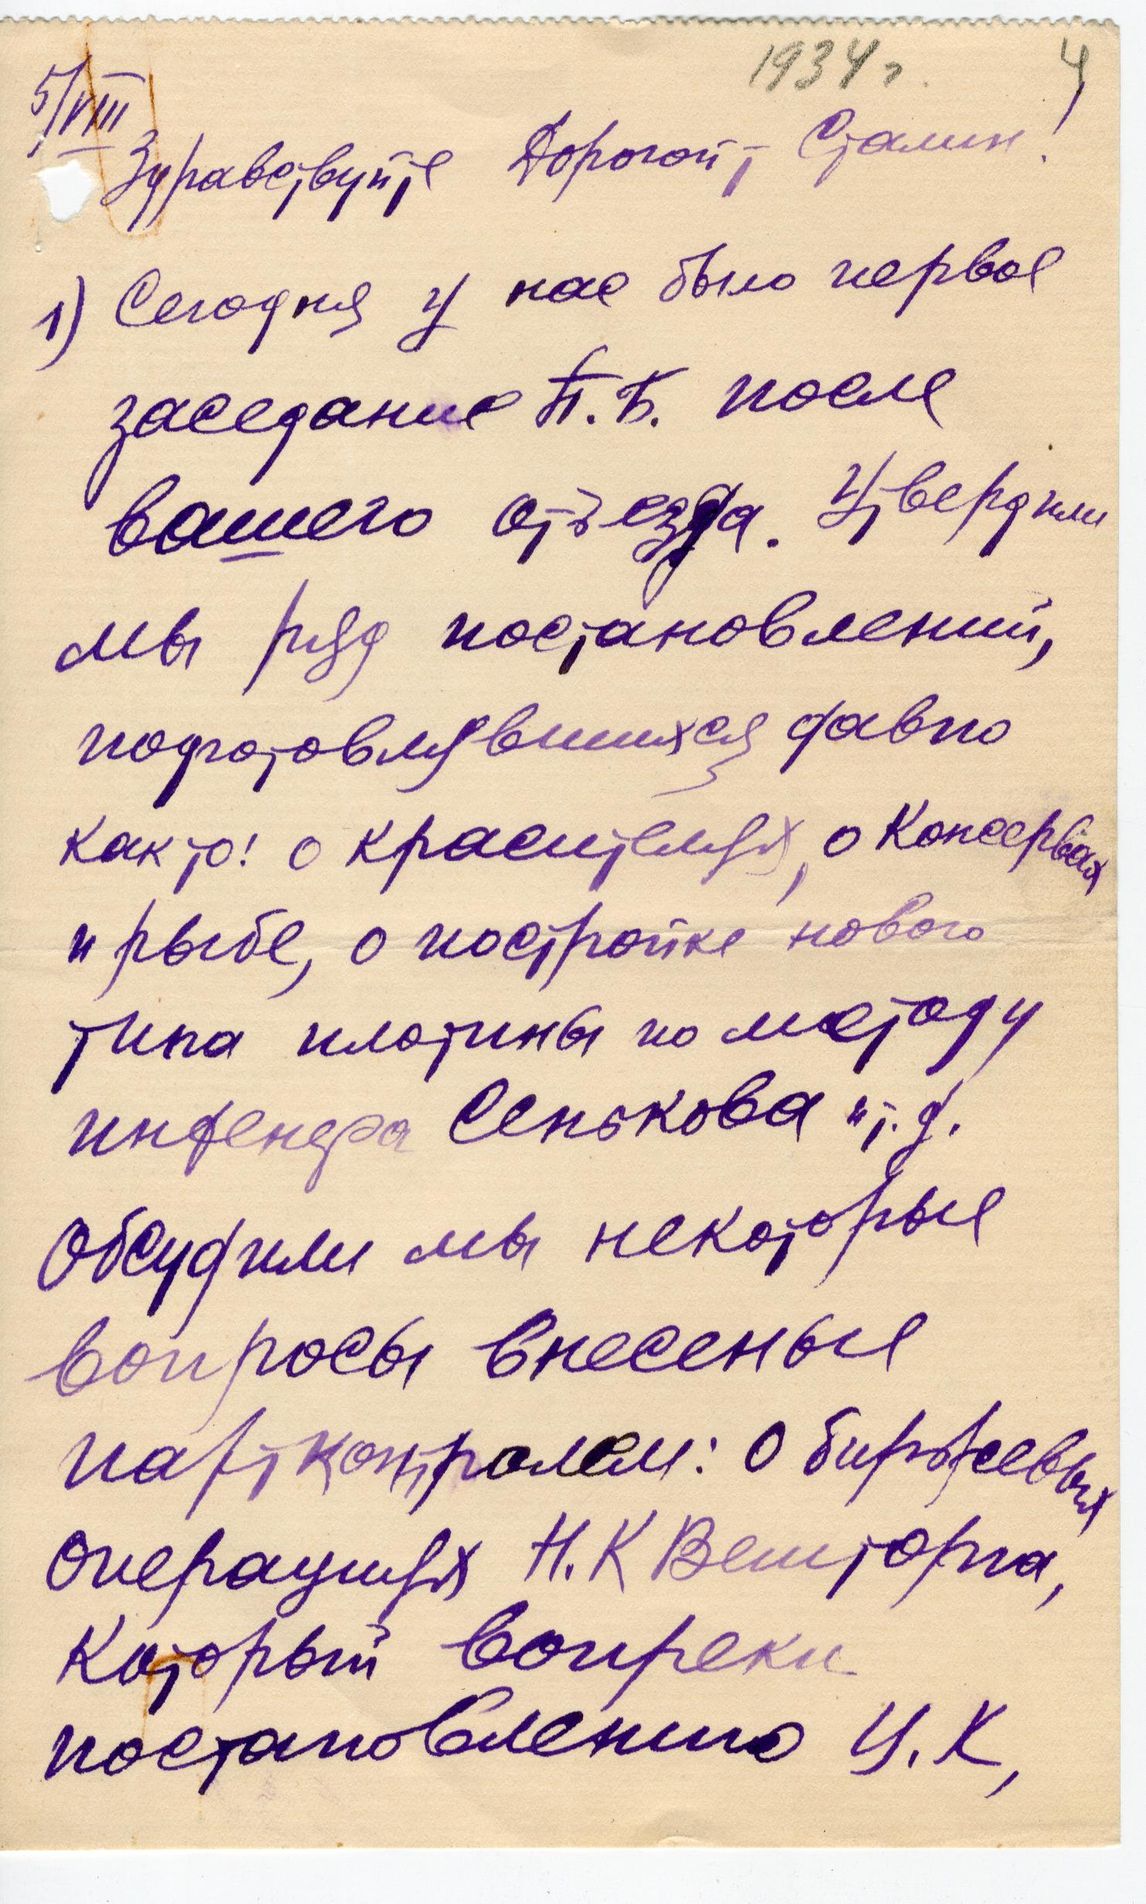 1934 г. 4
5/VIII
Здравствуйте Дорогой Сталин!
1) Сегодня у нас было первое
заседание П.Б. после
вашего отъезда. Утвердили
мы ряд постановлений,
подготовлявшихся давно
как то: о красителях, о Консервах
и рыбе, о постройке нового
типа плотины по методу
инженера Сенькова и т.д.
Обсудили мы некоторые
вопросы внесеные
партконтролем: О биржевых
операциях Н.К Внешторга,
Который вопреки
постановлению Ц.К,